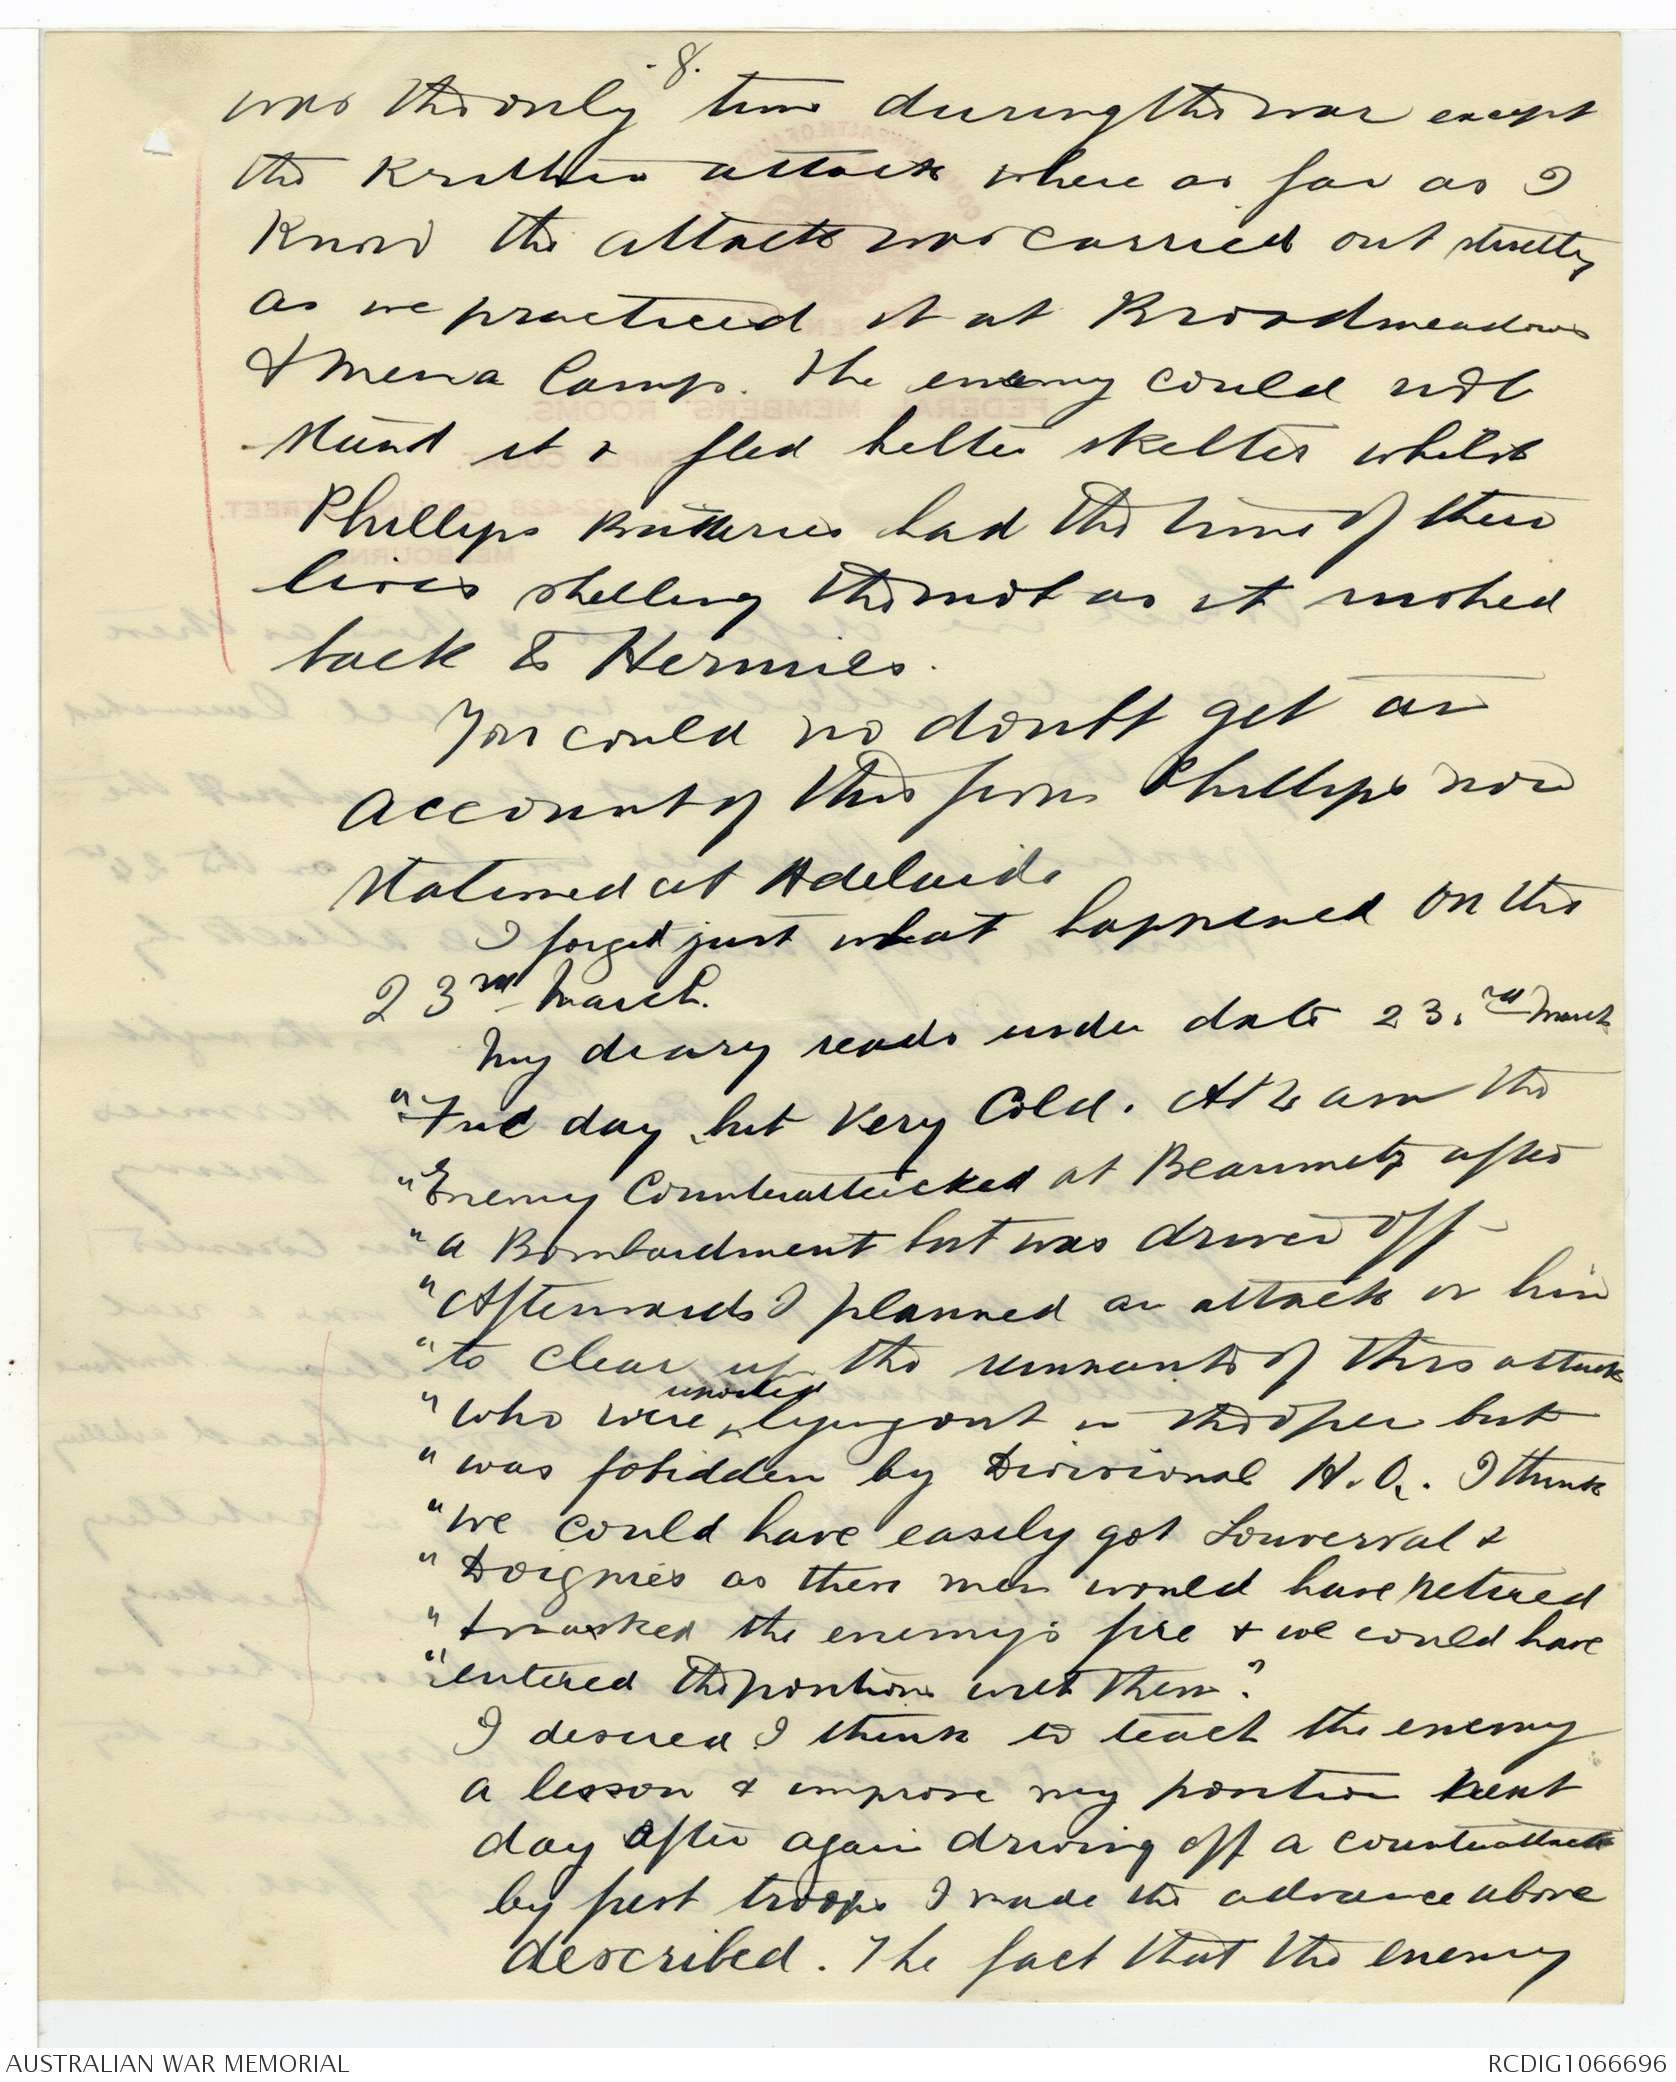 .8.
was the only time during the war except
the Krithia attack where as far as I
know the attack was carried out strictly
as we practiced it at Broadmeadows
& Mena Camp. The enemy could not
stand it & fled helter skelter whilst
Phillips Batteries had the time of their
lives shelling the mob as it rushed
back to Hermies.
You could no doubt get an
account of this from Phillips now
stationed at Adelaide
I forget just what happened on the
23rd March.
My diary reads under date 23.rd March
"Fine day but very Cold. At 4 am the
"Enemy Counterattacked at Beaumetz after
"a Bombardment but was driven off
"Afterwards I planned an attack on him
"to clear up the remnants of this attack
"who were lying out in the open but
"was fobidden by Divisional H.Q. I think
"we could have easily got Louverval &
"Doignies as these men would have retired
"& masked the enemy's fire & we could have
"entered the position with them."
I desired I think to teach the enemy
a lesson & improve my position next
day after again driving off a counterattack
by first troops I made the advance above
described. The fact that the enemy
FEDERAL MEMBERS' ROOMS.
AUSTRALIAN WAR MEMORIAL
RCDIG1066696